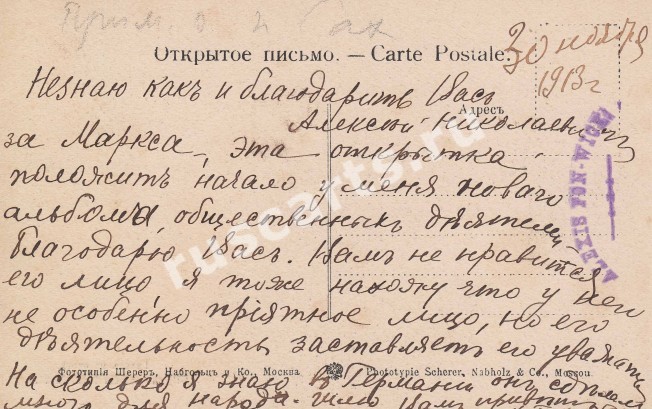 Открытое письмо. — Carte Postale.
30 ноября
1913 г
Незнаю какъ и благодарить Васъ
Адресъ
Алексѣй Николаевичъ
за Маркса, эта открытка
положитъ начало у меня новаго
альбома, общественныхъ дѣятелей
Благодарю Васъ. Вамъ не нравится
его лицо я тоже нахожу что у него
не особенно прiятное лицо, но его
дѣятельность заставляетъ его уважать
Фототипія Шереръ, Набгольцъ и Ко., Москва
Phototypie Scherer, Nabholz & Co., Moscou
На сколько я знаю въ Германіи онъ сдѣлалъ
много для народа.
ALEXIS FON-WICKEL
ruscarts.ru